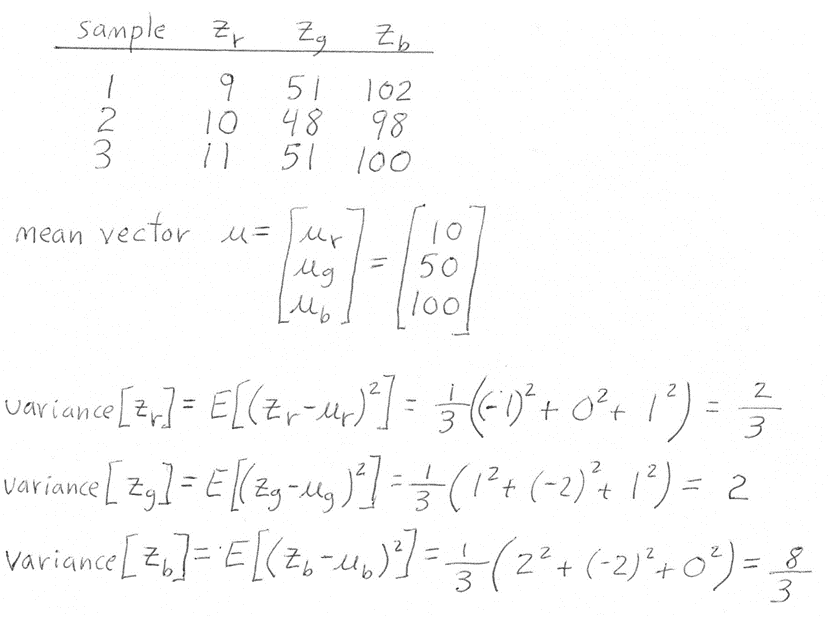 sample z_r z_g z_b
1 9 51 102
2 10 48 98
3 11 51 100
mean vector μ = [μ_r μ_g μ_b] = [10 50 100]
variance[z_r] = E[(z_r-μ_r)²] = 1/3((-1)² + 0² + 1²) = 2/3
variance[z_g] = E[(z_g-μ_g)²] = 1/3(1² + (-2)² + 1²) = 2
variance[z_b] = E[(z_b-μ_b)²] = 1/3(2² + (-2)² + 0²) = 8/3